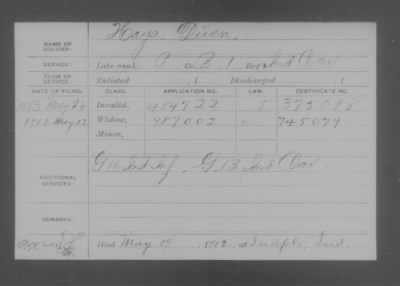 NAME OF SOLDIER: Hays, Diven,
SERVICE: Late rank, P Co. B, 1 Reg't Ind Cav
TERM OF SERVICE: Enlisted , 1 Discharged , 1
DATE OF FILING. CLASS. APPLICATION NO. LAW. CERTIFICATE NO.
1883 May 26 Invalid, 484922
1912 May 22 Widow, 987002 745079
Minor,
ADDITIONAL SERVICES: G 16 Ind Inf, G 13 Ind Cav.
REMARKS:
Died May 19, 1912, at Indpls, Ind.